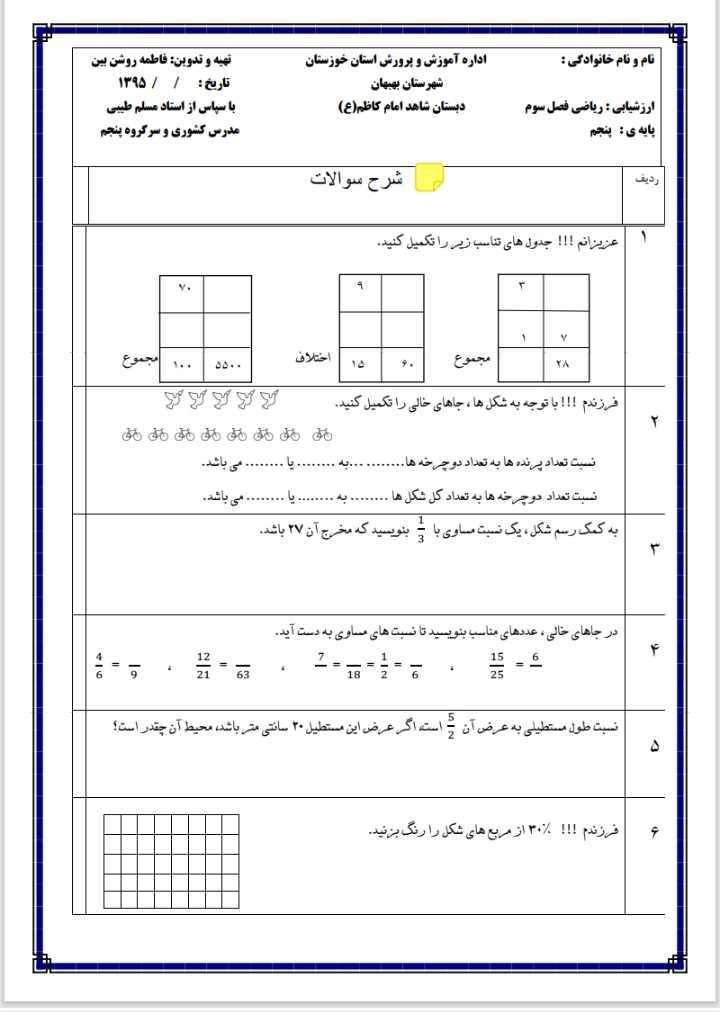 نام و نام خانوادگی : اداره آموزش و پرورش استان خوزستان تهیه و تدوین: فاطمه روشن بین
شهرستان بهبهان تاریخ : / / ۱۳۹۵
ارزشیابی : ریاضی فصل سوم دبستان شاهد امام کاظم(ع) با سپاس از استاد مسلم طیبی
پایه ی : پنجم مدرس کشوری و سرگروه پنجم
ردیف شرح سوالات
۱ عزیزانم !!! جدول های تناسب زیر را تکمیل کنید.
۳ ۹ ۷۰
۱ ۷
۲۸ مجموع ۱۵ ۶۰ اختلاف ۱۰۰ ۵۵۰۰ مجموع
۲ فرزندم !!! با توجه به شکل ها ، جاهای خالی را تکمیل کنید.
نسبت تعداد پرنده ها به تعداد دوچرخه ها........ ...به ........ یا ........ می باشد.
نسبت تعداد دوچرخه ها به تعداد کل شکل ها ........ به ........ یا ........ می باشد.
۳ به کمک رسم شکل ، یک نسبت مساوی با 1/3 بنویسید که مخرج آن ۲۷ باشد.
۴ در جاهای خالی ، عددهای مناسب بنویسید تا نسبت های مساوی به دست آید.
4/6 = __/9 ، 12/21 = __/63 ، 7/__ = __/18 = 1/2 = __/6 ، 15/25 = 6/__
۵ نسبت طول مستطیلی به عرض آن 5/2 است، اگر عرض این مستطیل ۲۰ سانتی متر باشد، محیط آن چقدر است؟
۶ فرزندم !!! ۳۰٪ از مربع های شکل را رنگ بزنید.